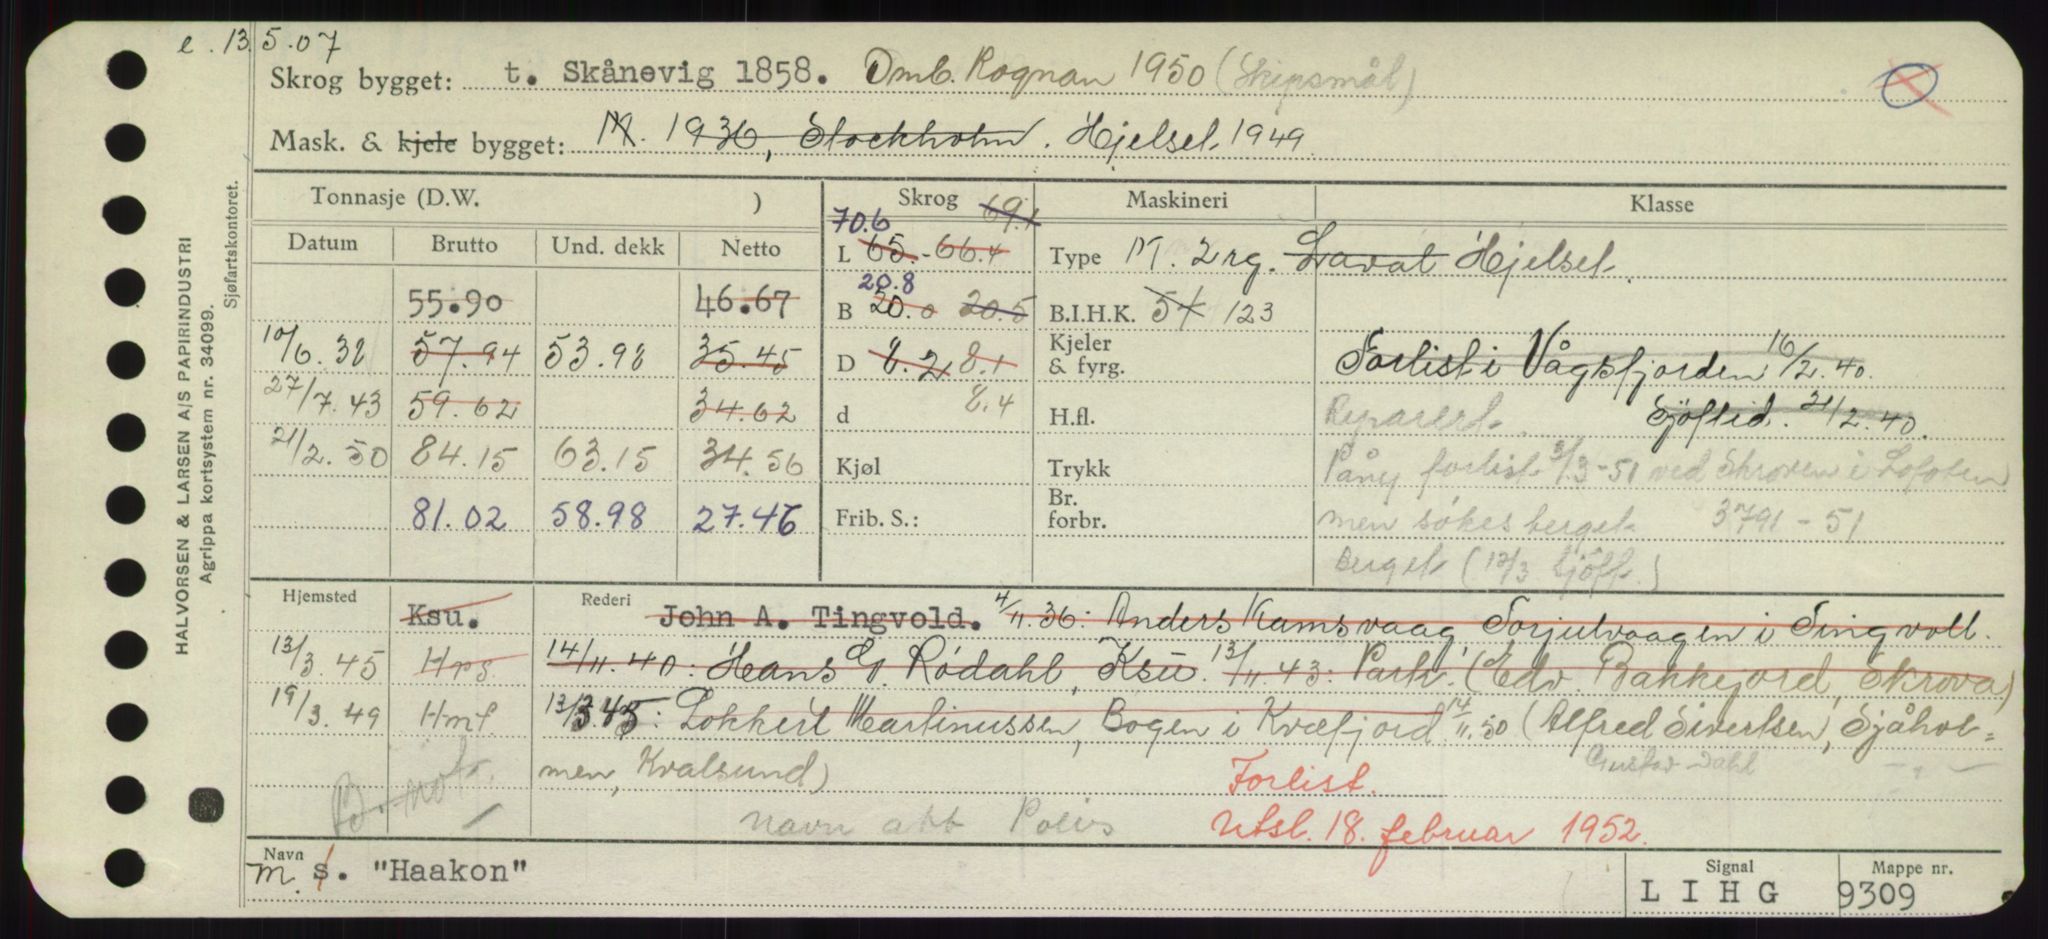 e. 13.5.07
Skrog bygget: t. Skånevig 1858. Omb. Rognan 1950 (Skipsmål)
Mask. & kjele bygget: M. 1936, Stockholm. Hjelset 1949
Tonnasje (D.W. ) Skrog 69.1 Maskineri Klasse
Datum Brutto Und. dekk Netto
70.6
L 65.- 66.4 Type M. 2 rg. Laval Hjelset.
20.8
55.90 46.67 B 20.0 20.5 B.I.H.K. 54 123
10/6.32 57.94 53.98 35.45 D 8.2 8.1 Kjeler & fyrg. Forlist i Vågsfjorden 16/2.40.
27/7.43 59.62 34.62 d 8.4 H.fl. Reparert. Sjöftid. 21/2.40.
21/2.50 84.15 63.15 34.56 Kjøl Trykk Påny forlist 3/3-51 ved Skroven i Lofoten
81.02 58.98 27.46 Frib. S.: Br. forbr. men søkes berget 3791-51
Berget (13/3 Sjöft.)
Hjemsted Ksu. Rederi John A. Tingvold. 4/11.36: Anders Kamsvaag, Torjulvaagen i Tingvoll.
13/3.45 Hrs 14/11.40: Hans G. Rödahl, Ksu. 13/11 43: Part. (Edv. Bakkejord, Skrova)
19/3.49 Hmf 13/3.45: Lokkert Martinussen, Bogen i Kvæfjord 14/11.50 (Alfred Sivertsen, Sjåhol=
men, Kvalsund) Gustav Dahl
Forlist.
Navn att Utsl. 18. februar 1952.
Navn m. s. "Haakon"
Signal L I H G
Mappe nr. 9309
HALVORSEN & LARSEN A/S PAPIRINDUSTRI
Agrippa kortsystem nr. 34099.
Sjøfartskontoret.